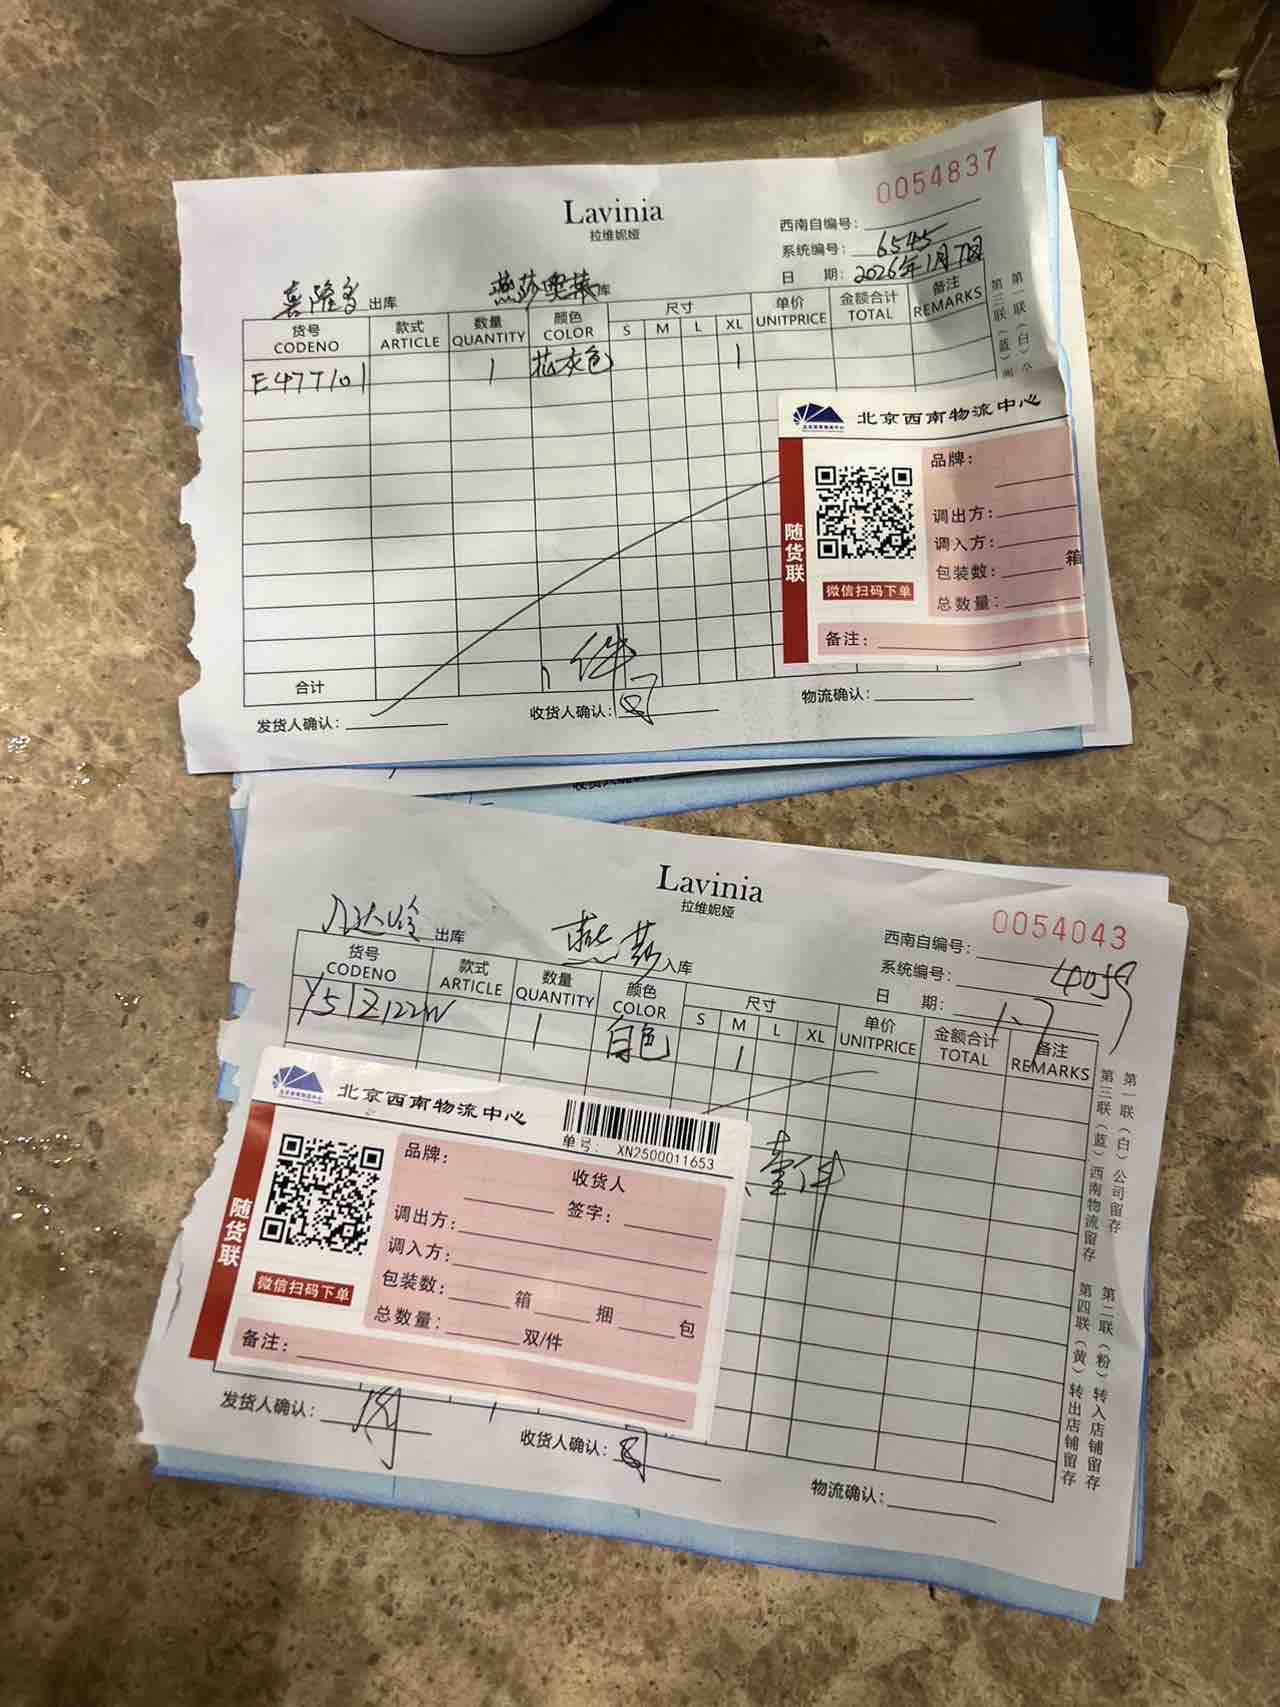 Lavinia
拉维妮娅
0054837
西南自编号：
系统编号： 6545
日 期： 2026年1月7日
喜隆多 出库 燕莎奥莱 库
货号 款式 数量 颜色 尺寸 单价 金额合计 备注
CODENO ARTICLE QUANTITY COLOR S M L XL UNITPRICE TOTAL REMARKS
E47T101 1 花灰色 1
第一联（白）公
第三联（蓝）西
北京西南物流中心
品牌：
调出方：
调入方：
包装数： 箱
总数量：
随货联
微信扫码下单
备注：
件
合计
发货人确认： 收货人确认： 物流确认：
收货人确认
Lavinia
拉维妮娅
0054043
西南自编号：
系统编号： 4059
日 期： 1.7
出库 燕莎 入库
货号 款式 数量 颜色 尺寸 单价 金额合计 备注
CODENO ARTICLE QUANTITY COLOR S M L XL UNITPRICE TOTAL REMARKS
Y51Z122W 1 白色 1
壹件
第一联（白）公司留存 第二联（粉）转入店铺留存
第三联（蓝）西南物流留存 第四联（黄）转出店铺留存
北京西南物流中心
单号： XN2500011653
品牌： 收货人
签字：
调出方：
调入方：
包装数： 箱 捆 包
总数量： 双/件
随货联
微信扫码下单
备注：
发货人确认： 收货人确认： 物流确认：